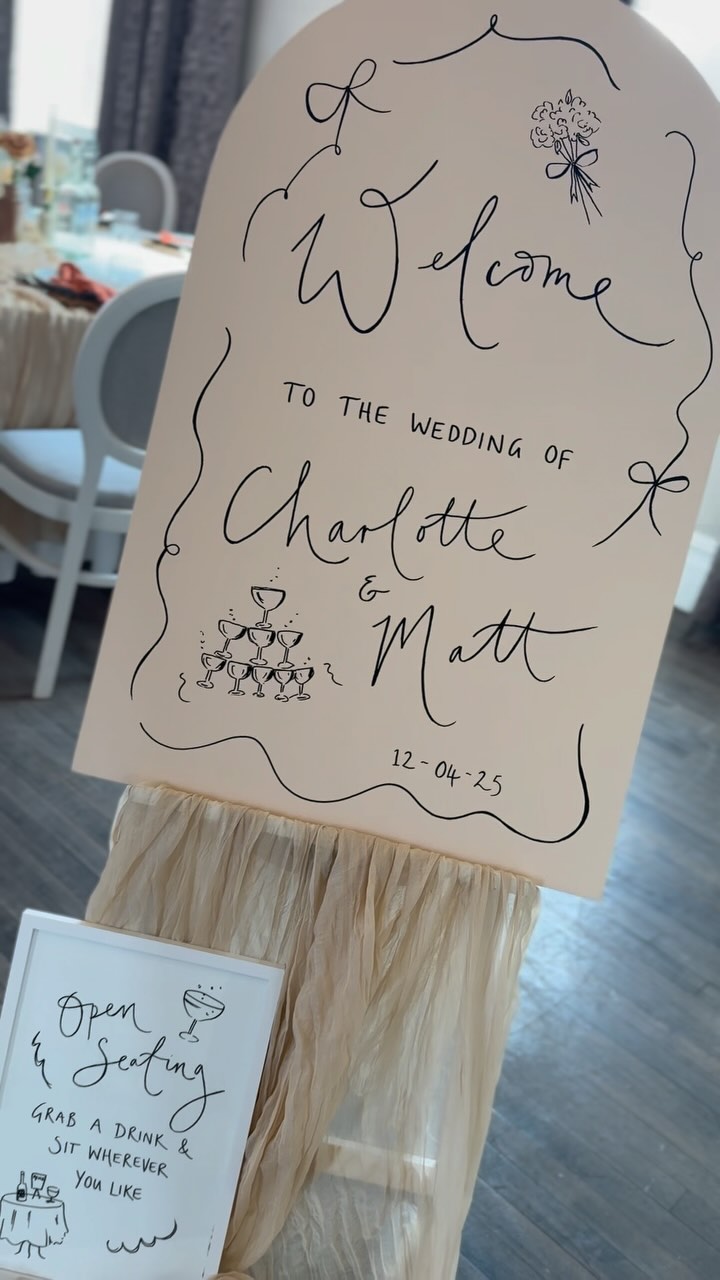 Welcome
TO THE WEDDING OF
Charlotte
&
Matt
12-04-25
Open
Seating
GRAB A DRINK &
SIT WHEREVER
YOU LIKE